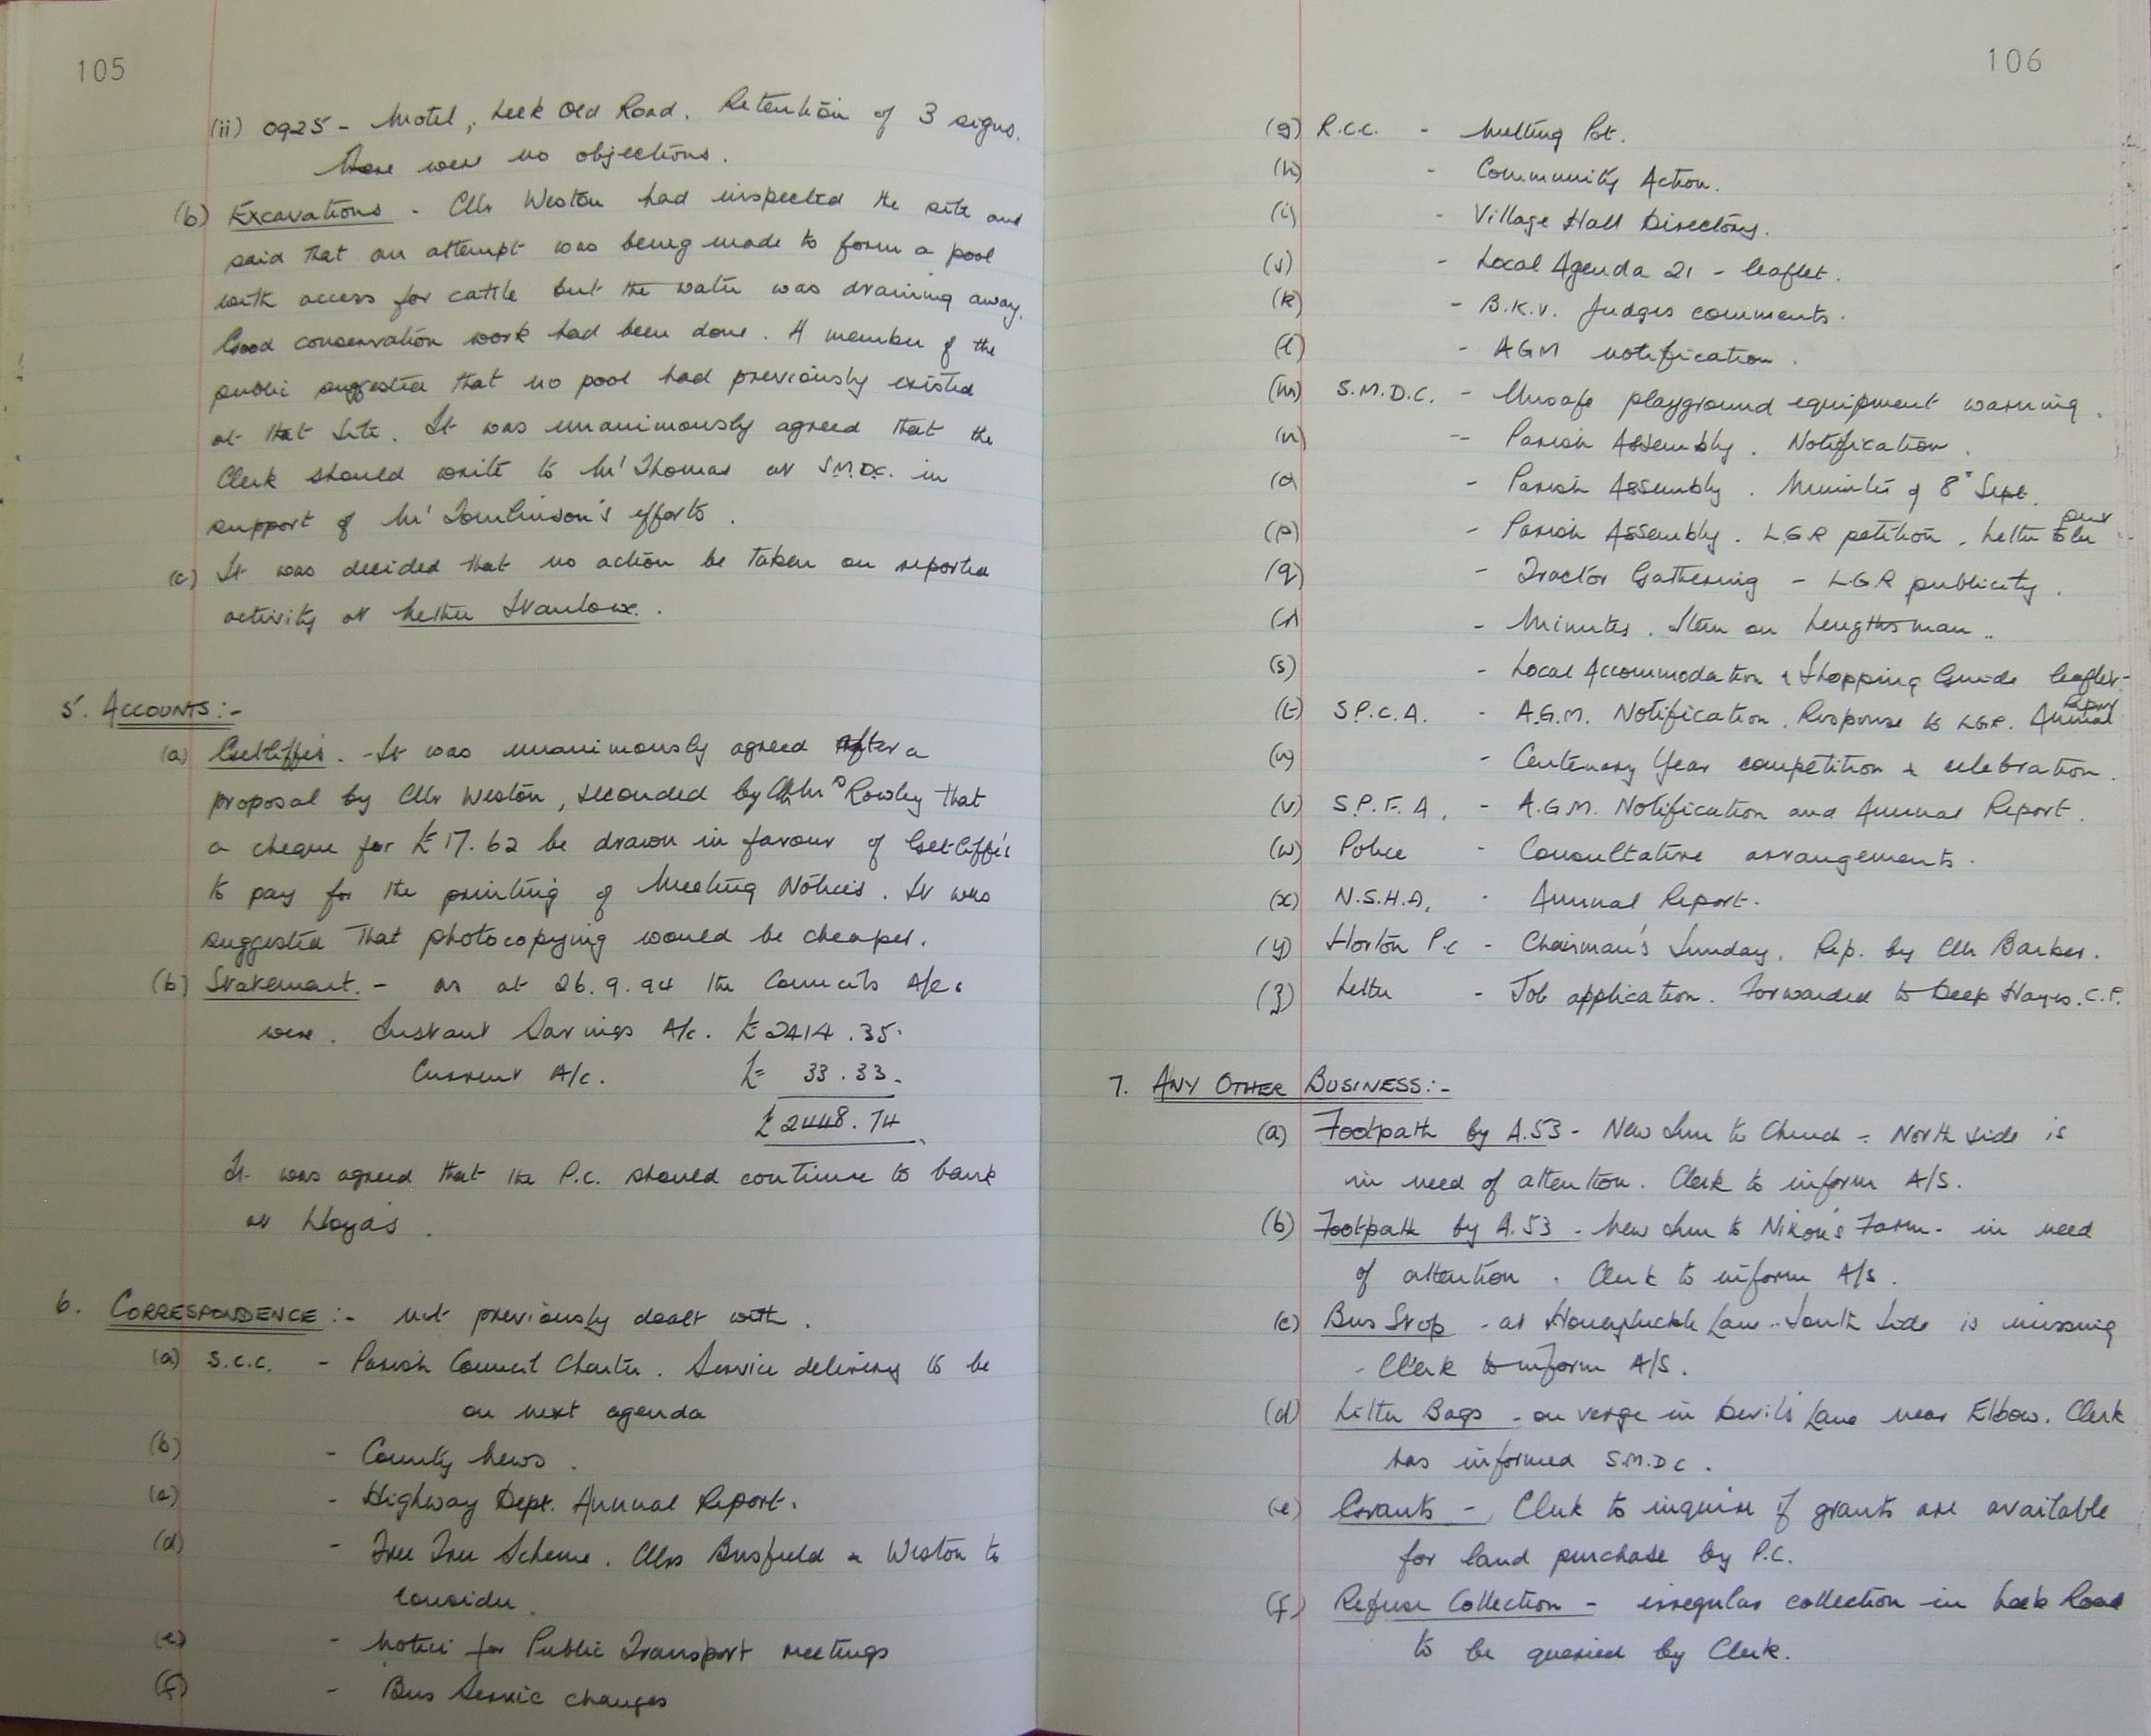 105
(ii) 0925 - Motel, Leek Old Road. Retention of 3 signs.
There were no objections.
(b) Excavations. Cllr Weston had inspected the site and
said that an attempt was being made to form a pool
with access for cattle but the water was draining away.
Good conservation work had been done. A member of the
public suggested that no pool had previously existed
at that site. It was unanimously agreed that the
Clerk should write to Mr Thomas at S.M.D.C. in
support of Mr Tomlinson's efforts.
(c) It was decided that no action be taken on reported
activity at Nether Stanlowe.
5. ACCOUNTS:-
(a) Getliffes. - It was unanimously agreed after a
proposal by Cllr Weston, seconded by Cllr Mrs Rowley that
a cheque for £17.62 be drawn in favour of Getliffes
to pay for the printing of Meeting Notices. It was
suggested that photocopying would be cheaper.
(b) Statement. - as at 26.9.94 the Councils A/cs
were. Instant Savings A/c. £2414.35.
Current A/c. £ 33.33.
£2448.74
It was agreed that the P.C. should continue to bank
at Lloyds.
6. CORRESPONDENCE:- not previously dealt with.
(a) S.C.C. - Parish Council Charter. Service delivery to be
on next agenda
(b) - County News.
(c) - Highway Dept. Annual Report.
(d) - Free Tree Scheme. Cllrs Busfield & Weston to
consider.
(e) - Notice for Public Transport meetings
(f) - Bus Service changes
106
(g) R.C.C. - Melting Pot.
(h) - Community Action.
(i) - Village Hall Directory.
(j) - Local Agenda 21 - leaflet.
(k) - B.K.V. Judges comments.
(l) - AGM notification.
(m) S.M.D.C. - Unsafe playground equipment warning.
(n) - Parish Assembly. Notification.
(o) - Parish Assembly. Minutes of 8" Sept.
(p) - Parish Assembly. LGR petition. Letter
(q) - Tractor Gathering - LGR publicity.
(r) - Minutes. Item on Lengthsman..
(s) - Local Accommodation & Shopping Guide leaflet.
(t) S.P.C.A. - A.G.M. Notification. Response to LGR. Annual Report
(u) - Centenary Year competition & celebration.
(v) S.P.F.A. - A.G.M. Notification and Annual Report.
(w) Police - Consultative arrangements.
(x) N.S.H.A. - Annual Report.
(y) Horton P.C - Chairman's Sunday. Rep. by Cllr Barker.
(z) Letter - Job application. Forwarded to Deep Hayes. C.P.
7. ANY OTHER BUSINESS:-
(a) Footpath by A.53 - New Inn to Church - North side is
in need of attention. Clerk to inform A/S.
(b) Footpath by A.53 - New Inn to Nixon's Farm - in need
of attention. Clerk to inform A/S.
(c) Bus Stop - at Honeysuckle Lane - South Side is missing
- Clerk to inform A/S.
(d) Litter Bags - on verge in Devil's Lane near Elbow. Clerk
has informed S.M.D.C.
(e) Grants - Clerk to inquire if grants are available
for land purchase by P.C.
(f) Refuse Collection - irregular collection in Leek Road
to be queried by Clerk.